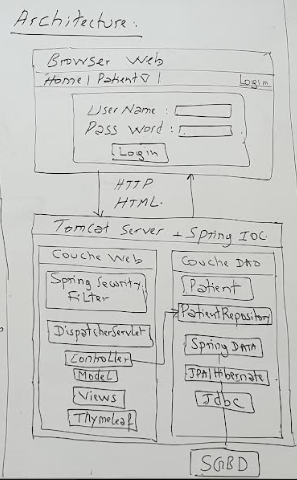 Architecture:
Browser Web
Home | Patient ▽ |
Login
UserName :
Pass Word :
Login
HTTP
HTML
Tomcat Server + Spring IOC
Couche Web
Spring Security
Filter
DispatcherServlet
Controller
Model
Views
Thymeleaf
Couche DAO
Patient
PatientRepository
Spring DATA
JPA/Hibernate
Jdbc
SGBD